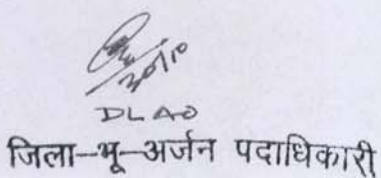 30/10
DLAO
जिला–भू–अर्जन पदाधिकारी